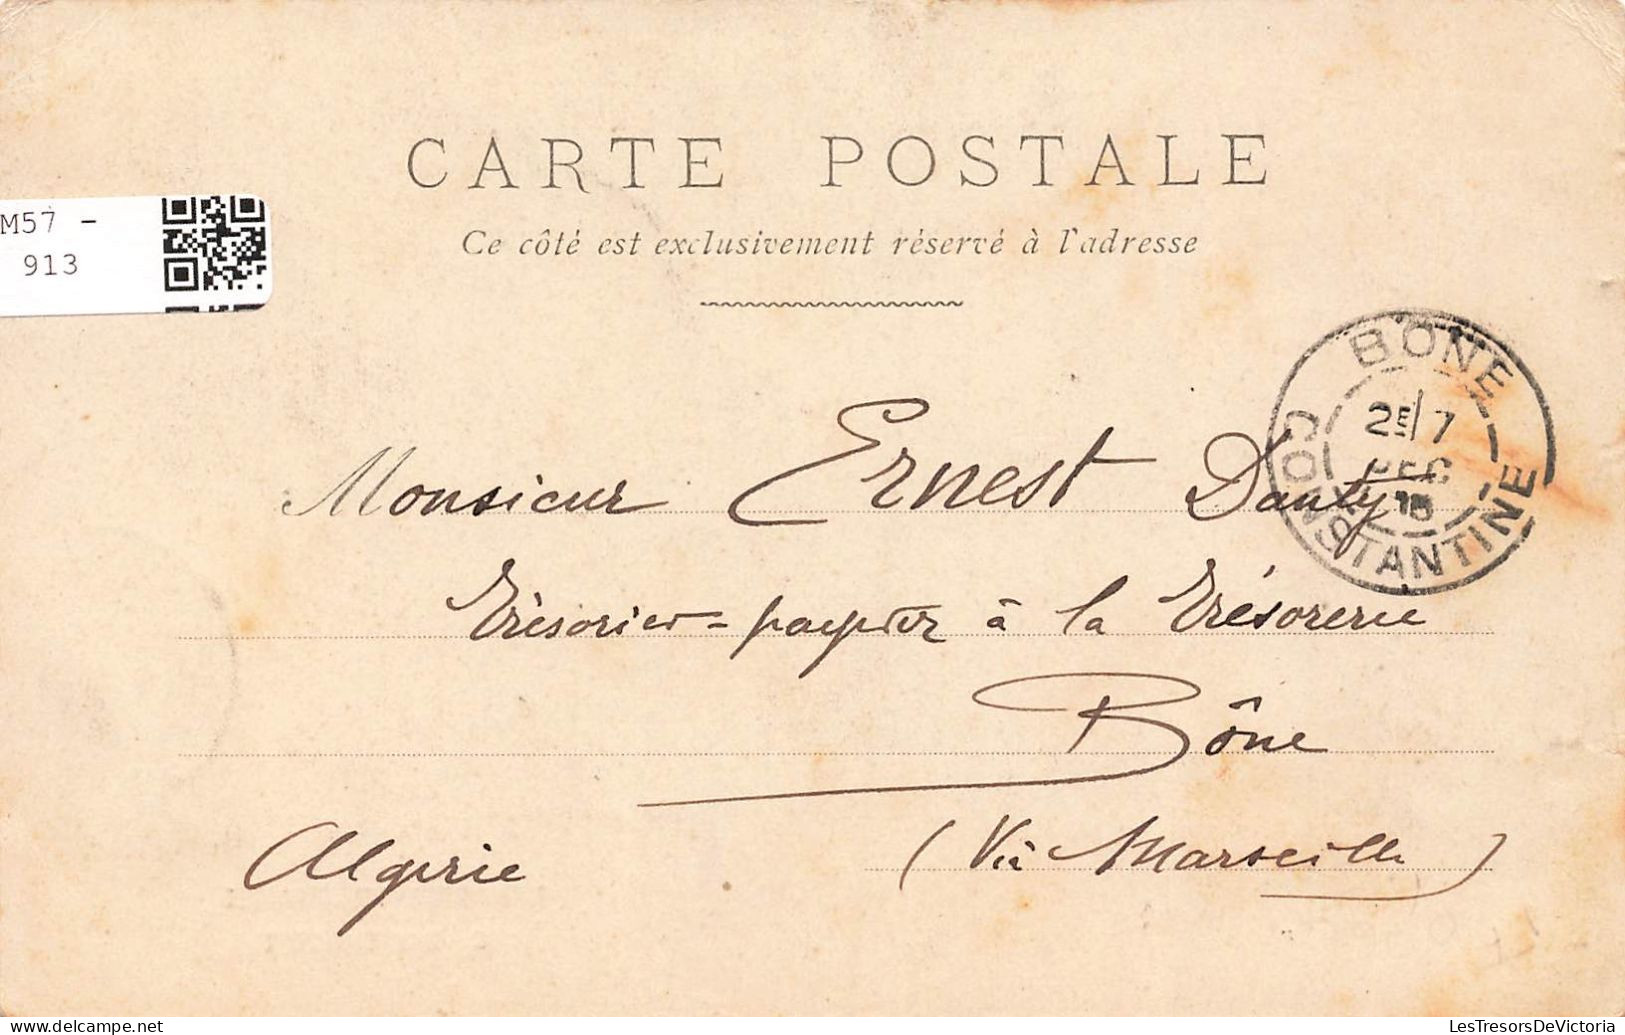 CARTE POSTALE
Ce côté est exclusivement réservé à l'adresse
M57 -
913
BÔNE
2E/7
DEC
CONSTANTINE
Monsieur Ernest Dauty
Trésorier-payeur à la Trésorerie
Bône
Algérie
(Via Marseille)
LesTresorsDeVictoria